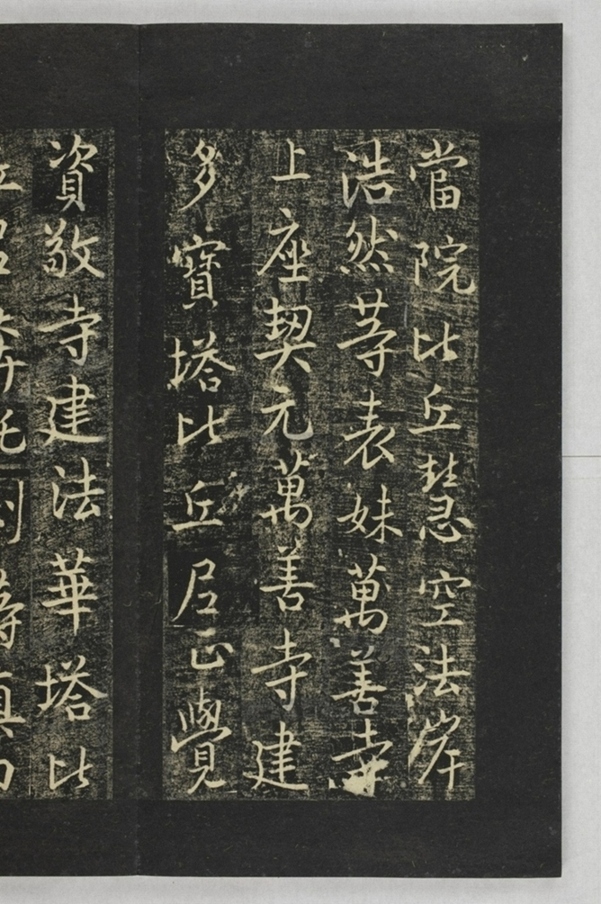 當院比丘慧空法岸
浩然等表妹萬善寺
上座契元萬善寺建
多寶塔比丘尼正覺
資敬寺建法華塔比